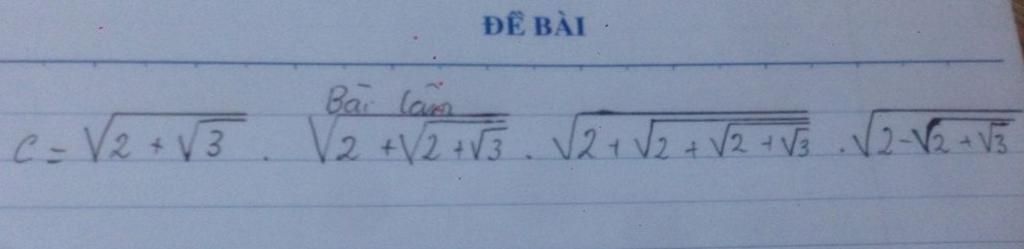 ĐỀ BÀI
Bài làm
C = √(2 + √3) . √(2 + √(2 + √3)) . √(2 + √(2 + √(2 + √3))) . √(2 - √(2 + √3))